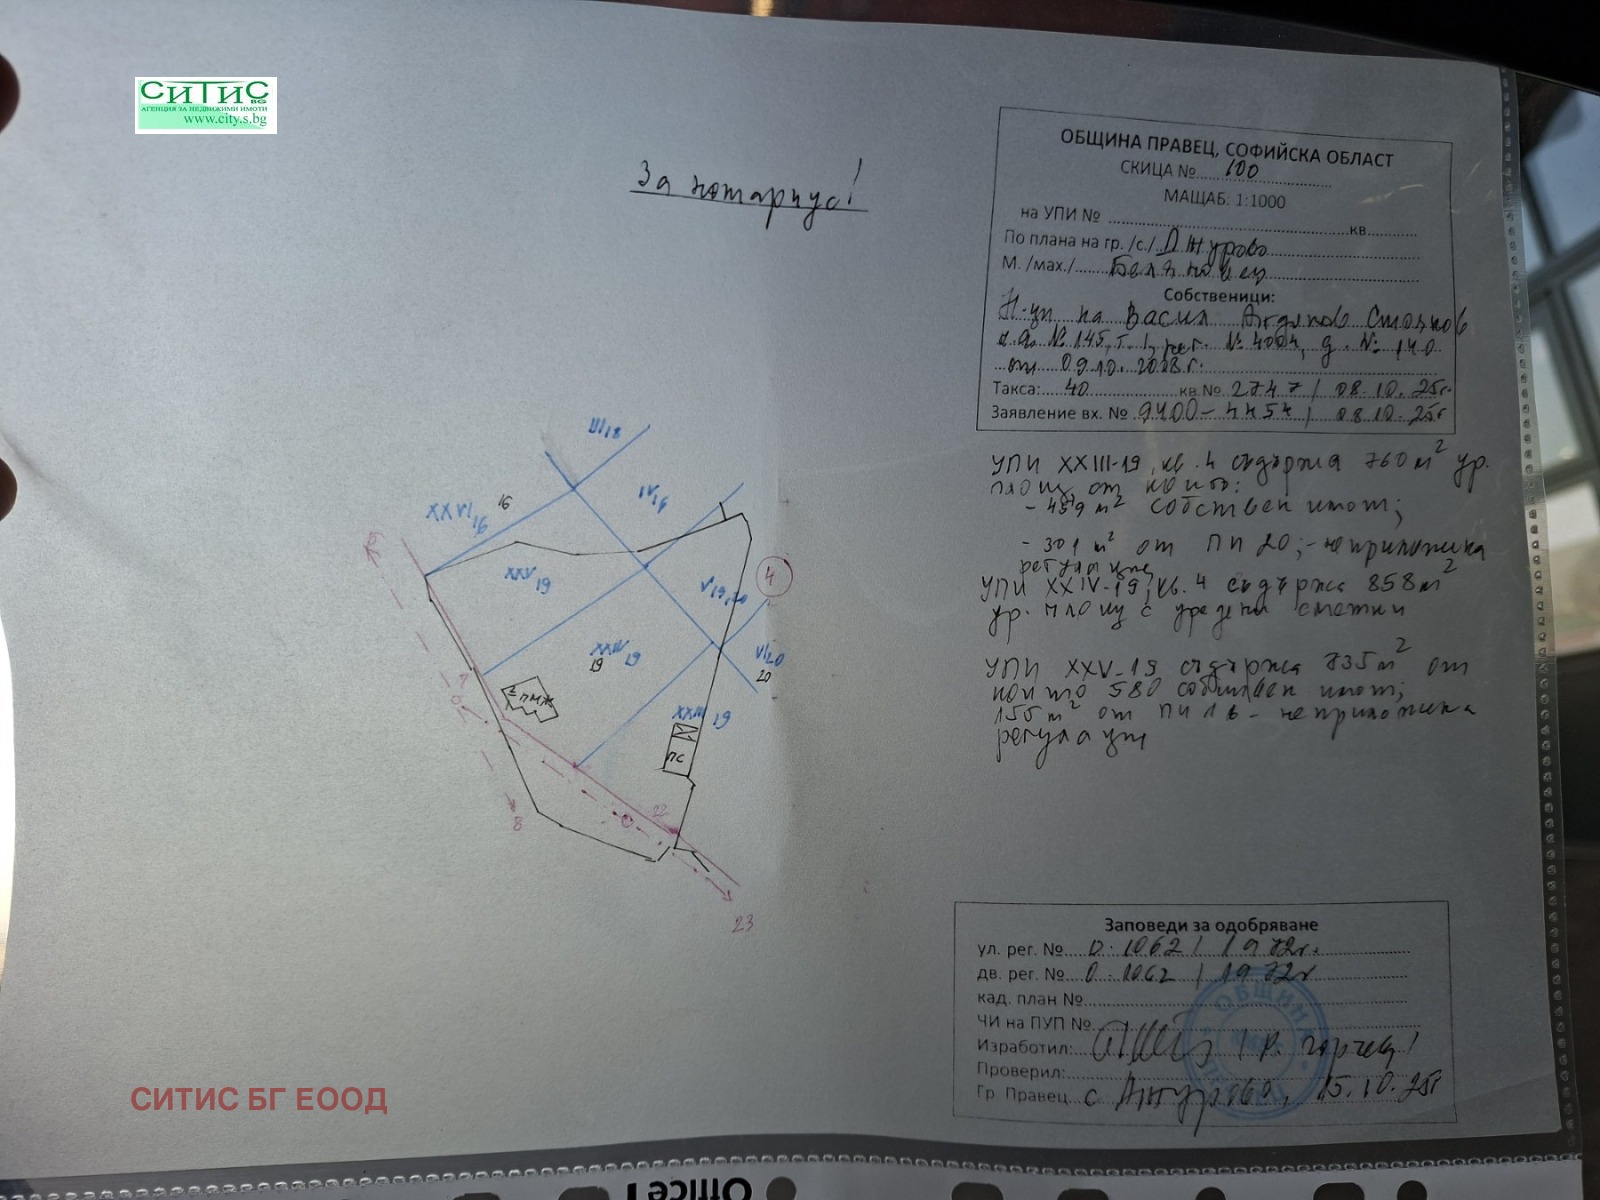 СиТиС BG
АГЕНЦИЯ ЗА НЕДВИЖИМИ ИМОТИ
www.city.s.bg
За нотариус!
ОБЩИНА ПРАВЕЦ, СОФИЙСКА ОБЛАСТ
СКИЦА № 100
МАЩАБ: 1:1000
на УПИ № кв.
По плана на гр. /с./ Джурово
М. /мах./
Собственици:
Н-ци на Васил Стоянов
н.а. № 145, т. I, рег. № 4004, д. № 140
от 09.10.2008г.
Такса: 40 кв № 2747 / 08.10.25г.
Заявление вх. № 9400- / 08.10.25г
УПИ XXIII-19, кв. 4 съдържа 760 м² ур.
площ от които:
- 459 м² собствен имот;
- 301 м² от ПИ 20; - неприложена
регулация
УПИ XXIV-19, кв. 4 съдържа 858 м²
ур. площ с уредени сметки
УПИ XXV-19 съдържа 735 м² от
които 580 собствен имот;
155 м² от ПИ 16 - неприложена
регулация
III 18
XXVI 16
16
IV 16
XXV 19
V 19,20
4
XXIV 19
19
VI 20
20
2 ПМЖ
XXIII 19
ПС
8
22
23
Заповеди за одобряване
ул. рег. № 0.1062 / 1972г.
дв. рег. № 0.1062 / 1972г
кад. план №
ЧИ на ПУП №
Изработил:
Проверил:
Гр. Правец с Джурово, 15.10.25г
ОБЩИНА
СИТИС БГ ЕООД
Office 1